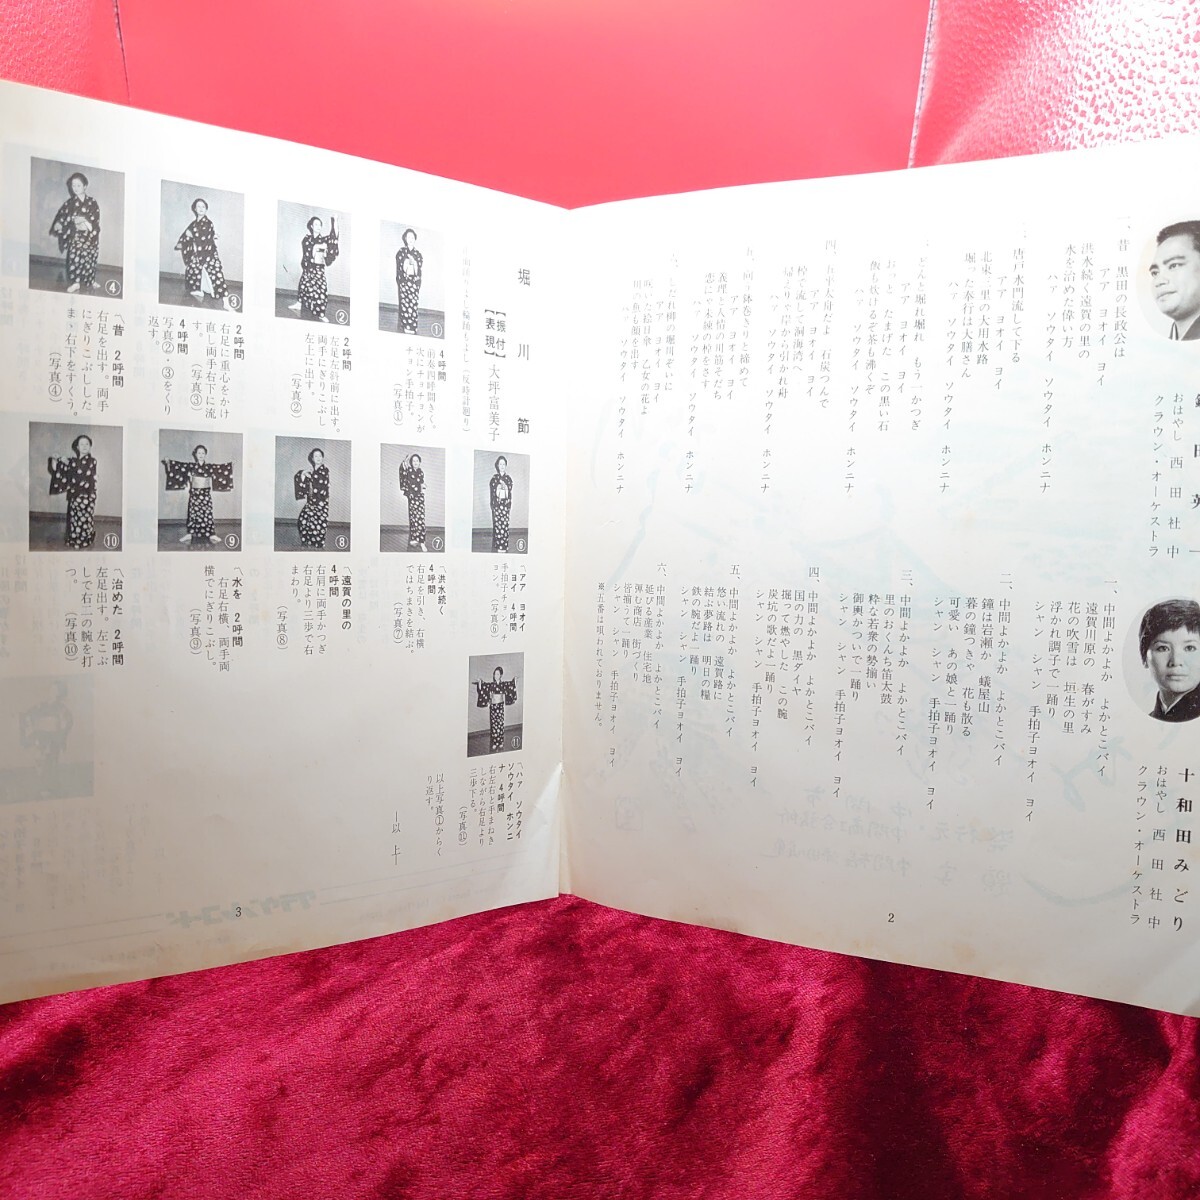 一、昔 黒田の長政公は
アア ヨオイ ヨイ
洪水続く遠賀の里の
水を治めた偉い方
ハァ ソウタイ ソウタイ ホンニナ
唐戸水門流して下る
北東三里の大用水路
堀った奉行は大膳さん
ハァ ソウタイ ソウタイ ホンニナ
どんと堀れ堀れ もう一かつぎ
おっと たまげた この黒い石
飯も炊けるぞ茶も沸くぞ
ハァ ソウタイ ソウタイ ホンニナ
四、五平太船だよ 石炭つんで
アア ヨオイ ヨイ
桿で流して洞海湾へ
帰どりゃ岸から引かれ舟
ハァ ソウタイ ソウタイ ホンニナ
五、向っ鉢巻きりと締めて
アア ヨオイ ヨイ
義理と人情の川筋そだち
恋にゃ未練の桿をさす
ハァ ソウタイ ソウタイ ホンニナ
六、しだれ柳の堀川ぞいに
アア ヨオイ ヨイ
咲いた絵日傘 乙女の花よ
川の魚も顔を出す
ハァ ソウタイ ソウタイ ホンニナ
おはやし 西田社中
クラウン・オーケストラ
一、中間よかよか よかとこバイ
遠賀川原の 春がすみ
花の吹雪は 垣生の里
浮かれ調子で一踊り
シャン シャン 手拍子ヨオイ ヨイ
二、中間よかよか よかとこバイ
鐘は岩瀬か 蟻屋山
暮の鐘つきゃ 花も散る
可愛い あの娘と一踊り
シャン シャン 手拍子ヨオイ ヨイ
三、中間よかよか よかとこバイ
里のおくんち笛太鼓
粋な若衆の勢揃い
御輿かついで一踊り
シャン シャン 手拍子ヨオイ ヨイ
四、中間よかよか よかとこバイ
国の力の 黒ダイヤ
掘って燃やした この腕
炭坑の歌だよ一踊り
シャン シャン 手拍子ヨオイ ヨイ
五、中間よかよか よかとこバイ
悠い流れの 遠賀路に
結ぶ夢路は 明日の糧
鉄の腕だよ一踊り
シャン シャン 手拍子ヨオイ ヨイ
六、中間よかよか よかとこバイ
延びる産業 住宅地
弾む商店 街づくり
皆揃うて一踊り
シャン シャン 手拍子ヨオイ ヨイ
※五番は唄われておりません。
十和田みどり
おはやし 西田社中
クラウン・オーケストラ
2
堀川節
【振付表現】大坪富美子
①
4呼間
前奏四呼間きく。
次からチョチョンが
チョンと手拍子。
②
2呼間
右足左斜前に出す。
両手にぎりこぶし
左上に出す。
(写真②)
③
2呼間
右足に重心をかけ
直し両手右下に流
す。 (写真③)
4呼間
写真②③をくり
返す。
④
〽昔 2呼間
右足を出す。両手
にぎりこぶしした
まゝ右下をすくう。
(写真④)
⑥
〽アア ヨオイ
ヨイ 4呼間
手拍子チョン、チ
ョン。(写真⑥)
⑦
〽洪水続く
4呼間
右足を引き、右横
ではちまきを結ぶ。
(写真⑦)
⑧
〽遠賀の里の
4呼間
右肩に両手かつぎ
右足より三歩で右
まわり。
(写真⑧)
⑨
〽水を 2呼間
右足右横、両手両
横でにぎりこぶし。
(写真⑨)
⑩
〽治めた 2呼間
左足出す。左こぶ
しで右二の腕を打
つ。 (写真⑩)
⑪
〽ハァ ソウタイ
ソウタイ ホンニ
ナ 4呼間
右左右と手まねき
しながら右足より
三歩下る。
(写真⑪)
以上写真①からく
り返す。
―以上―
3